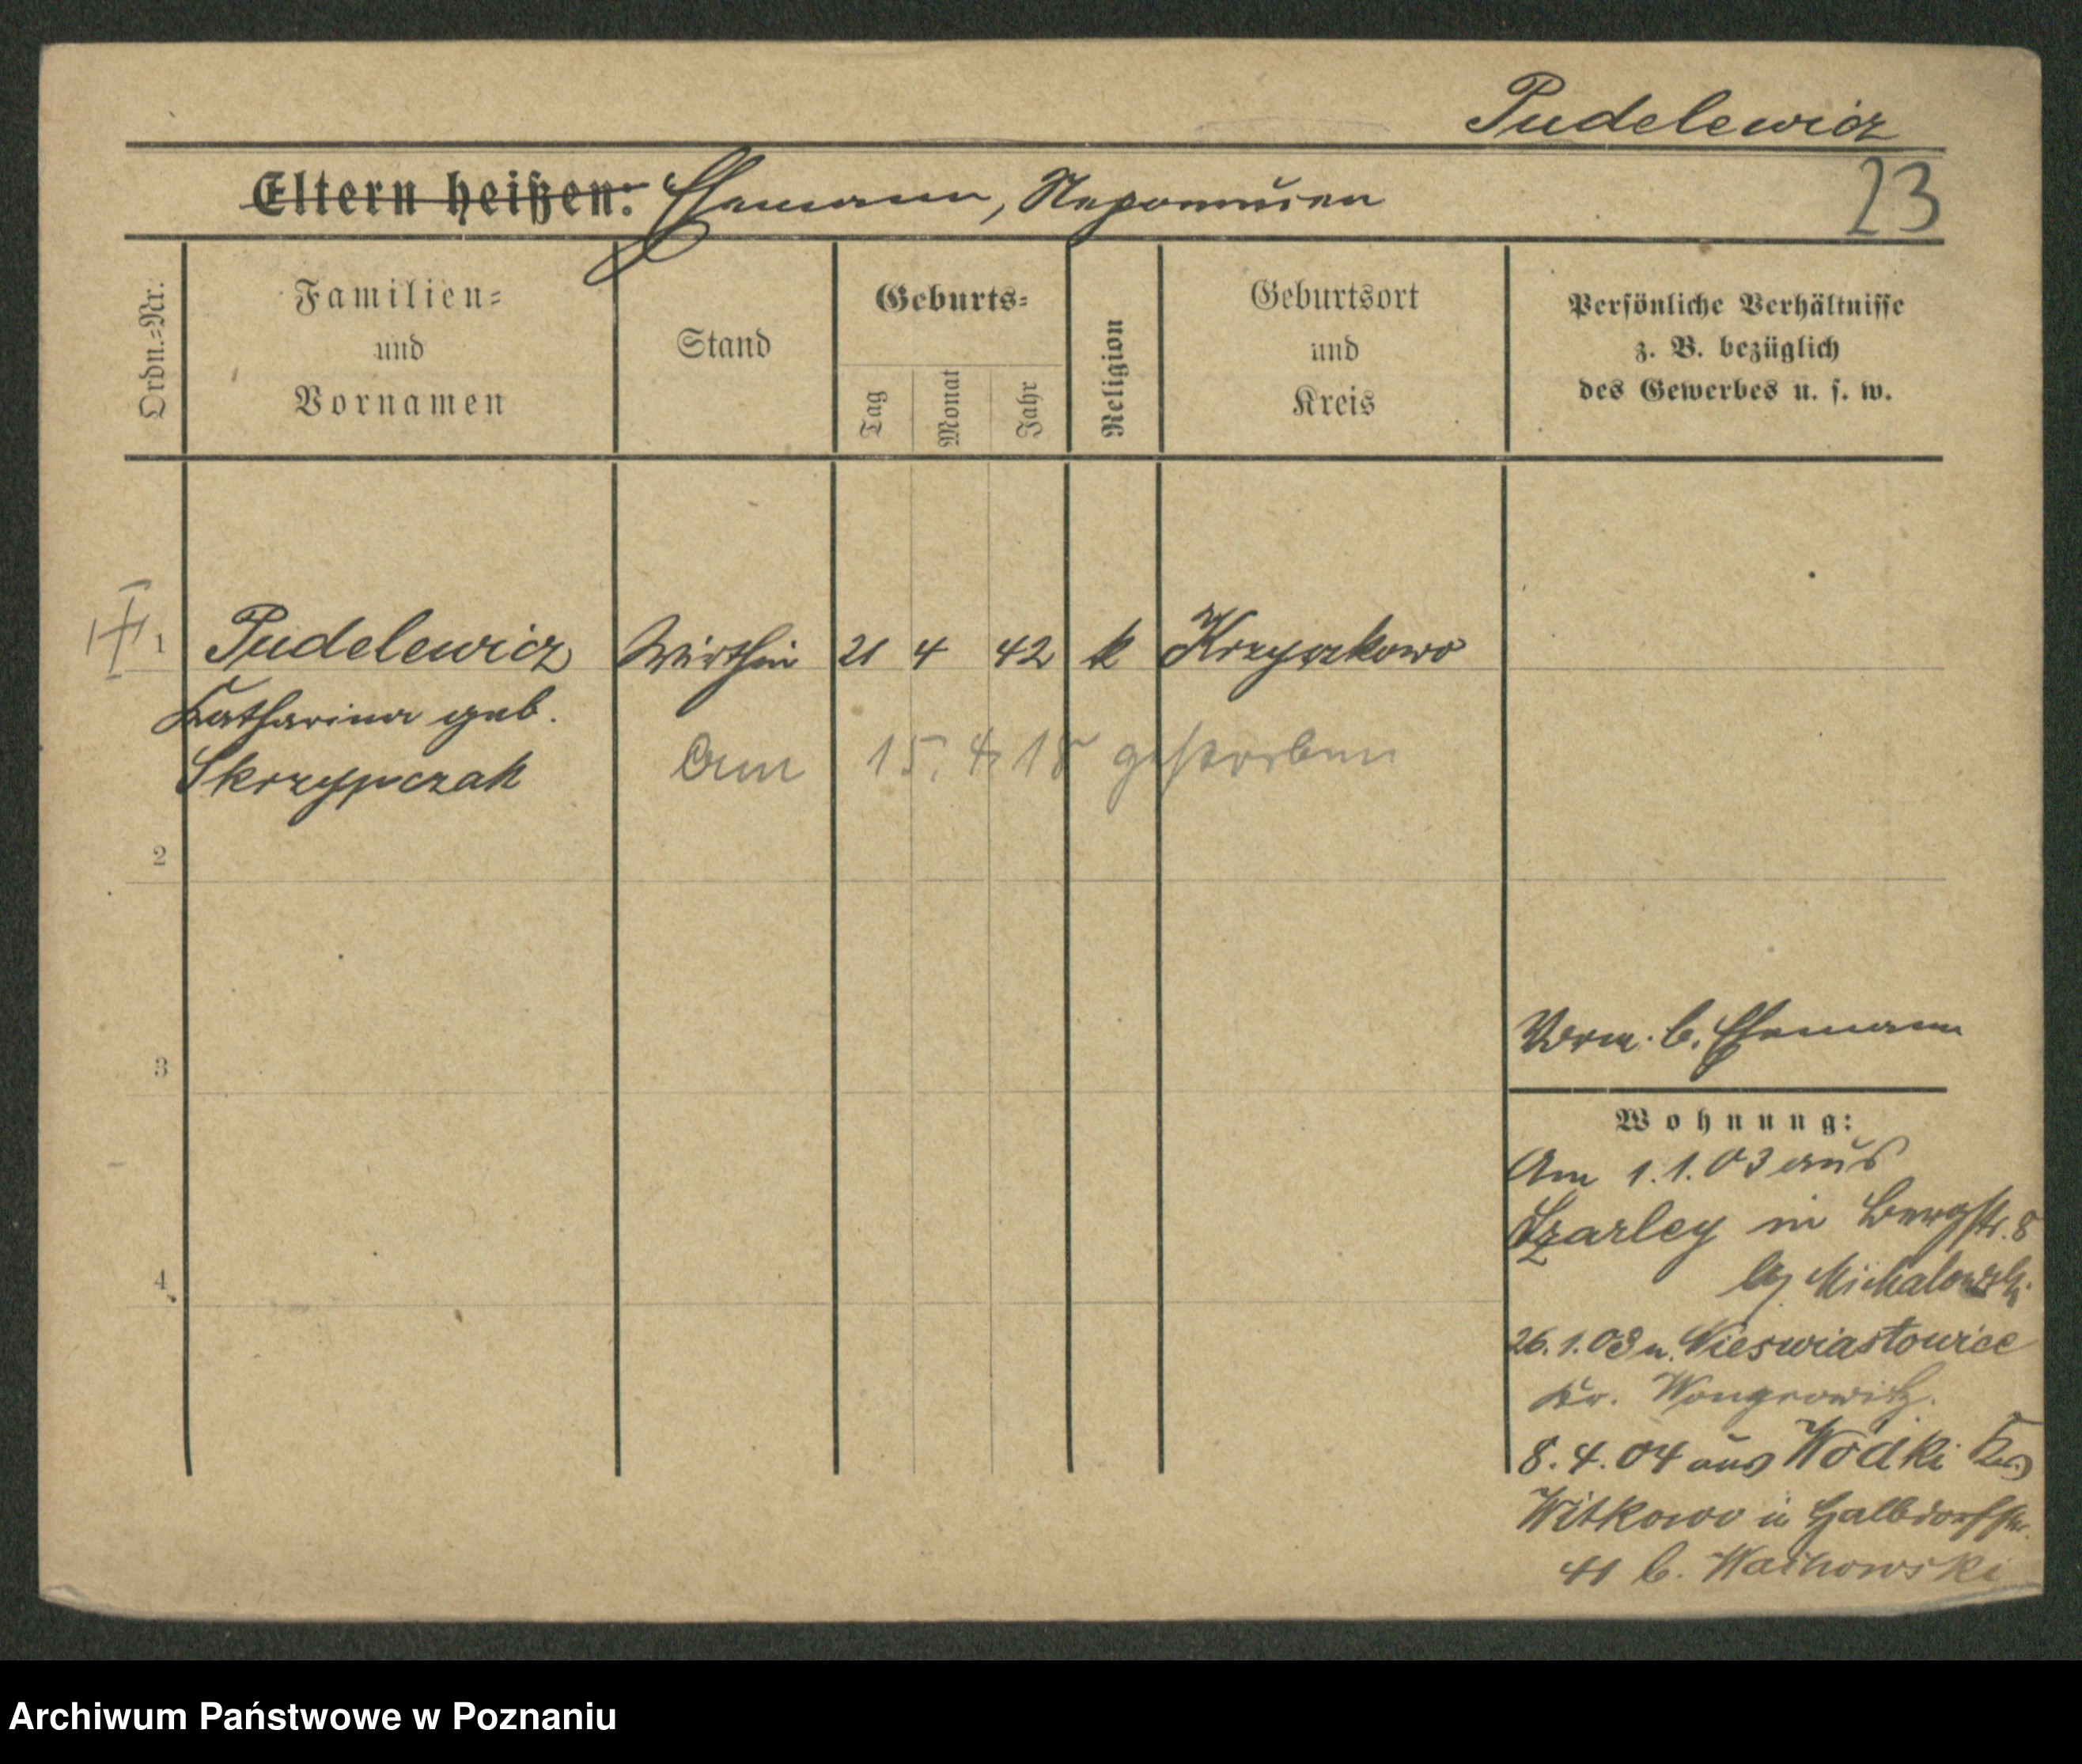 Pudelewicz
Eltern heißen: Ehemann, Nepomucen
23
Ordn.=Nr.
Familien=
und
Vornamen
Stand
Geburts=
Tag
Monat
Jahr
Religion
Geburtsort
und
Kreis
Persönliche Verhältnisse
z. B. bezüglich
des Gewerbes u. s. w.
1 Pudelewicz Wirthin 21 4 42 k Krzyszkowo
Katharina geb.
Skrzypczak
Am 15. 4 18 gestorben
2
3
4
Verm. b. Ehemann
Wohnung:
Am 1.1.03 aus
Szarley in Bergstr. 8
by Michalowski
26.1.03 n. Nieswiastowice
Kr. Wongrowitz.
8.4.04 aus Wódki Krs
Witkowo in Halbdorfstr.
41 b. Wachowski
Archiwum Państwowe w Poznaniu